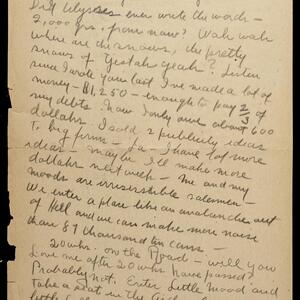 Did Ulysses ever write the words —
2,000 yrs. from now? Wah wah
where are the snows, the pretty
snows of Yestah Yeah? Listen
since I wrote you last I've made a lot of
money — $1,250 — enough to pay 2/3 of
my debts. Now I only owe about 600
dollahs. I sold 2 publicity ideas
to big firms — Ja — I have lots more
ideas — maybe I'll make more
dollahs next week — Me and my
moods are irresisissible salesmen —
We enter a place like an avalanche out
of Hell and we can make more noise
than 87 thousand tin cans —
20 whs. on the Road — well you
Love me after 20 whs have passed?
Probably not. Enter Little Mood and
take a seat in the
Little